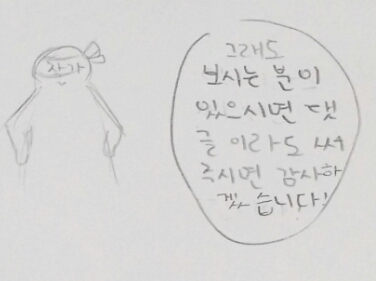 작가
그래도
보시는 분이
있으시면 댓
글이라도 써
주시면 감사하
겠습니다!